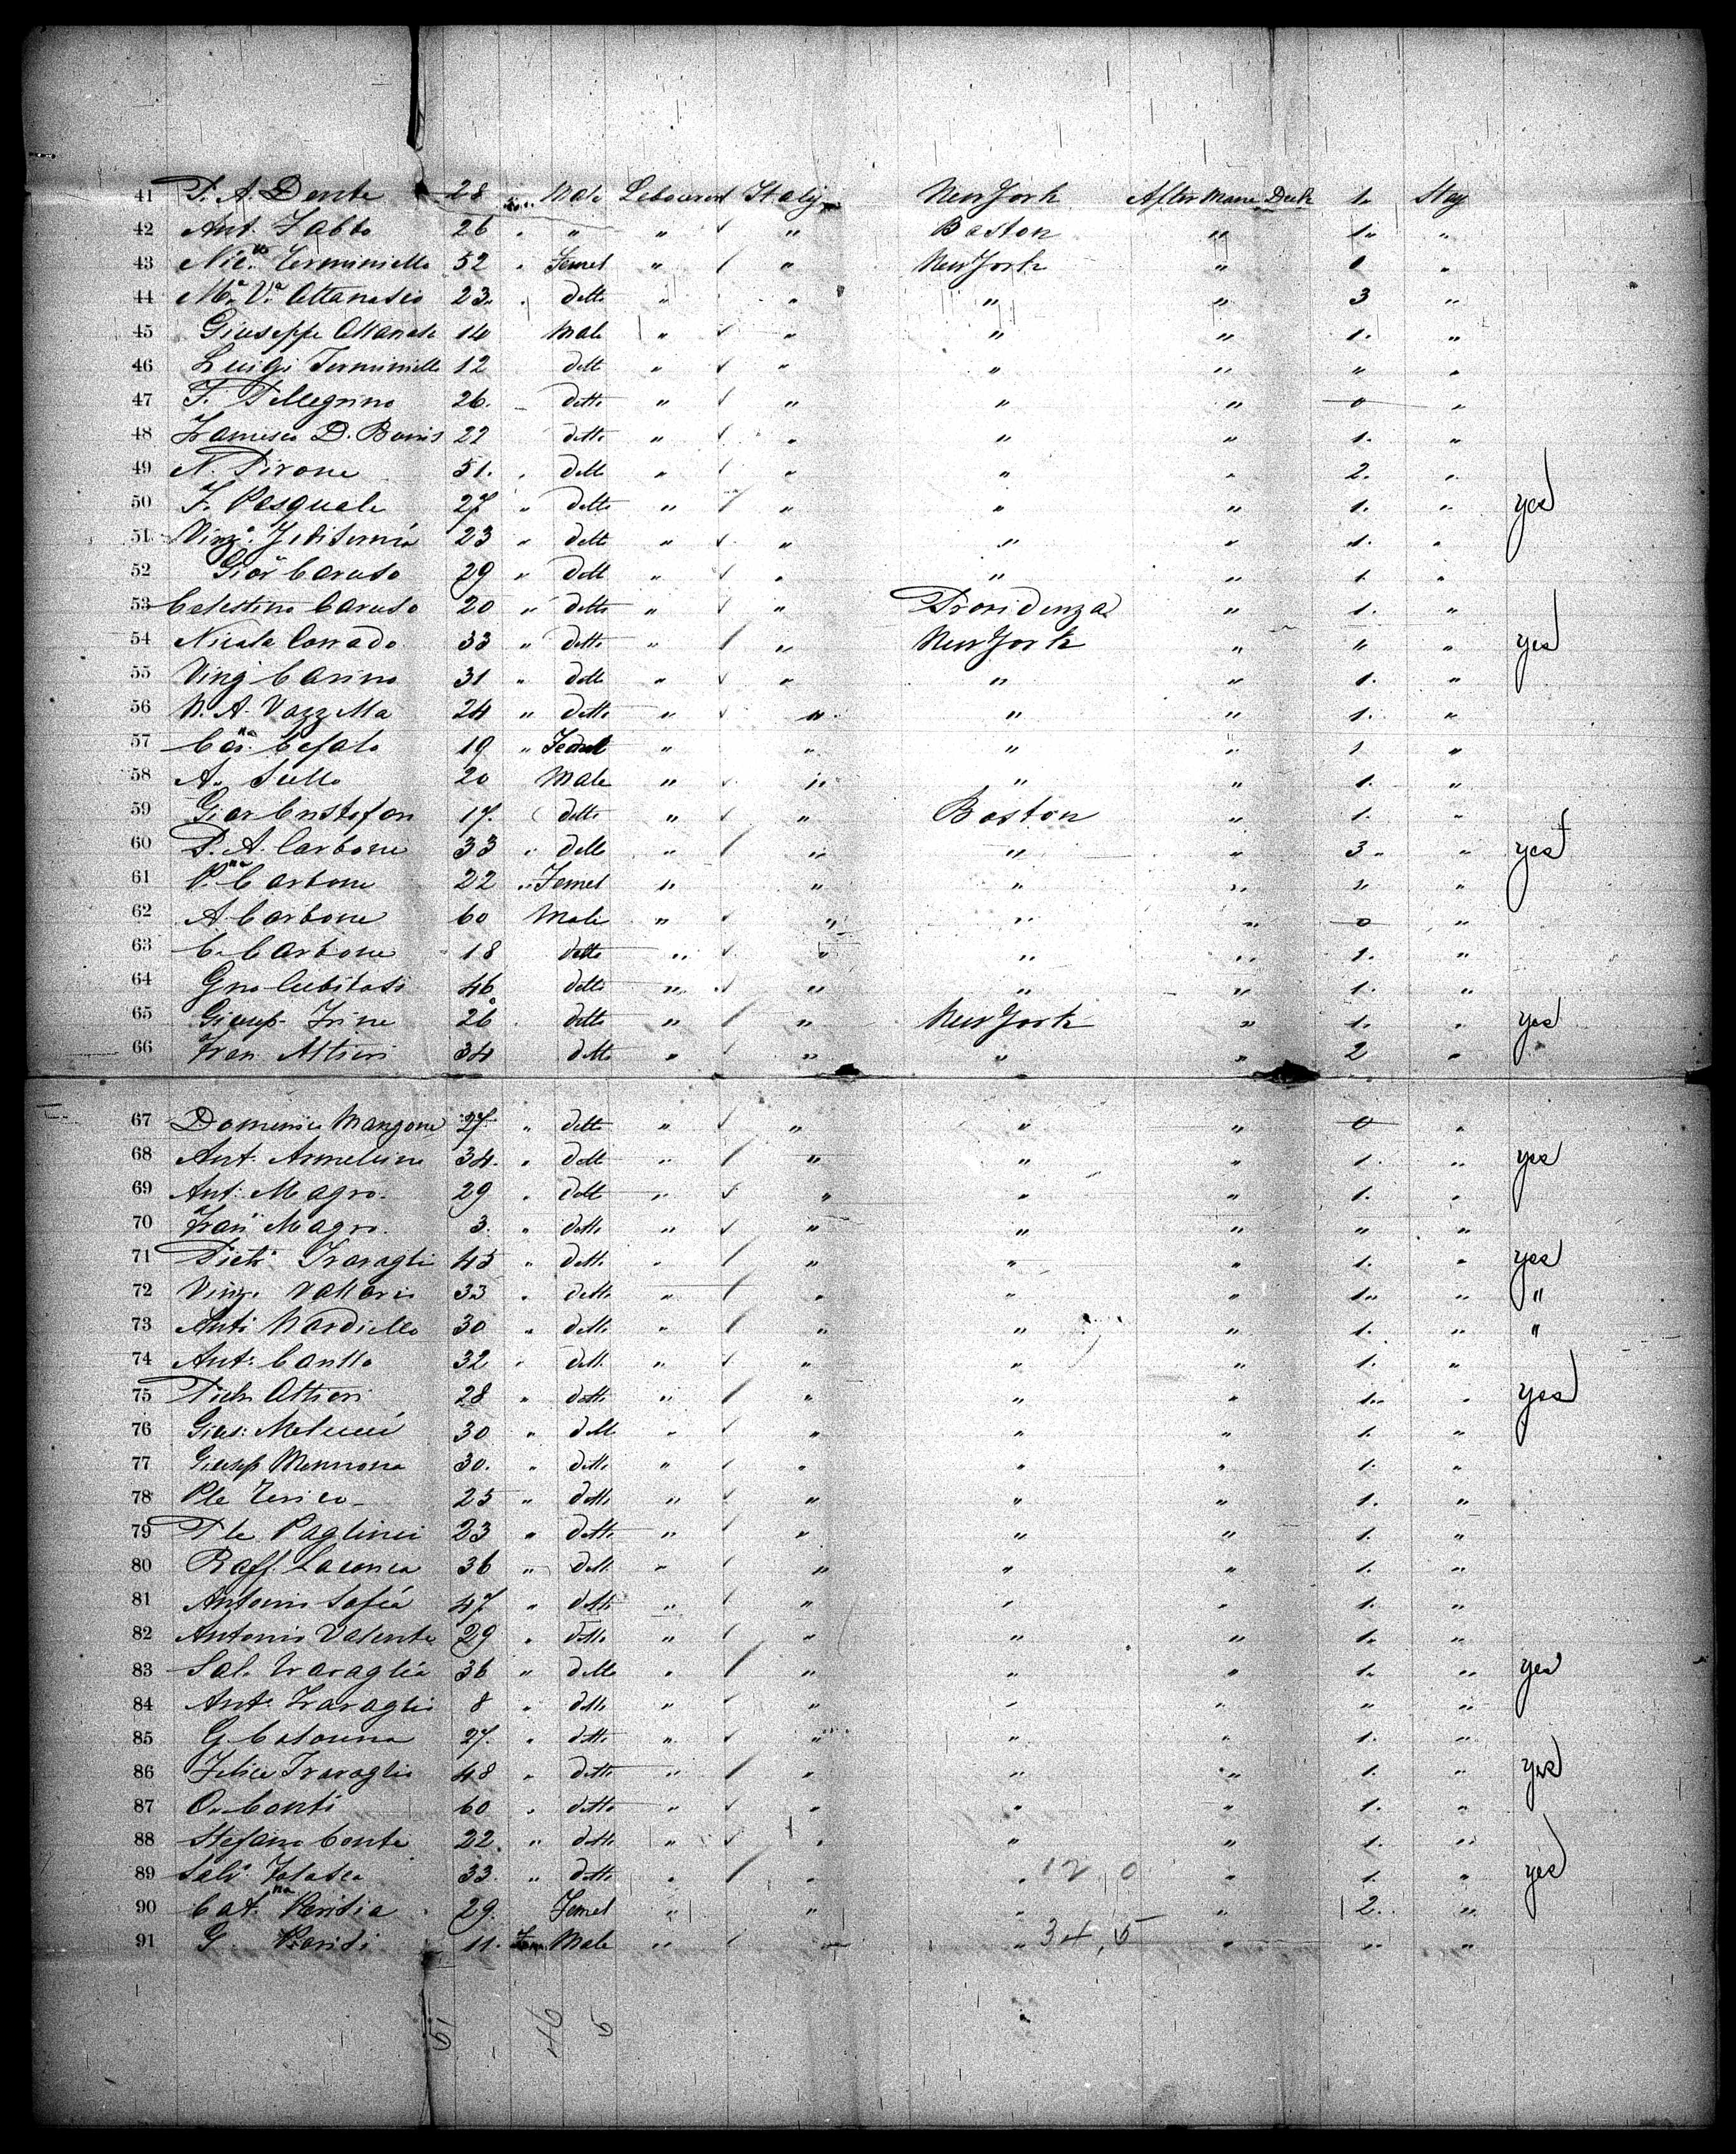 41 P. A. Dente 28 " Male Labourent Italy New York After Main Deck 1. Stay
42 Ant. Zabbo 26 " " " " Boston " 1. "
43 Nic.na Terminiello 52 " Femel " " New York " 0 "
44 M.a V.a Attanasio 23. " detto " " " " 3 "
45 Giuseppe Attanasi Male " " " " 1. "
46 Luigi Terminiello 12 dett " " " " " "
47 F. Pellegrino 26. detto " " " " 0 "
48 Francisco D. 22 detto " " " " 1. "
49 N. Pirone 51. " dett " " " " 2. "
50 F. Pasquale 27 " detto " " " " 1. " yes
51 Vinz. 23 " dett " " " " 1. "
52 Gior Caruso 29 " dett " " " " 1. "
53 Celestino Caruso 20 " detto " " Providenza " 1. "
54 Nicola Corrado 33 " detto " " New York " " " yes
55 Vinz Carino 31 " dett " " " " 1. "
56 N. A. Vozzella 24 " detto " " " " 1. "
57 Cefalo 19 " Femel " " " " 1. "
58 A. Sullo 20 Male " " " " 1. "
59 Gior Cristofori 17. detto " " Boston " 1. "
60 P. A. Carbone 33 " dello " " " " 3 " yes
61 P.na Carbone 22 " Femel " " " " " "
62 A. Carbone 60 Male " " " " 0 "
63 C. Carbone 18 detto " " " " 1. "
64 Gno Cubitosi 46 detto " " " " 1. "
65 Giusep. Frine 26 detto " " New York " 1. " yes
66 Fran Altieri 34 detto " " " " 2 "
67 Domenico Mangone 27 " detto " " " " 0 "
68 Ant. 34. " dett " " " " 1. " yes
69 Ant. Magro. 29 " dett " " " " 1. "
70 Fran Magro. 3. " detto " " " " " "
71 Pietr Travaglio 45 " detto " " " " 1. " yes
72 Vinz. Vallario 33 " detto " " " " 1. " "
73 Anti Nardiello 30 " detto " " " " 1. " "
74 Ant. 32 " dett. " " " " 1. "
75 Pietr Altieri 28 " detto " " " " 1. " yes
76 Gius: Melucci 30 " dett " " " " 1. "
77 Giusep Mennona 30. " detto " " " " 1. "
78 Ple 25 " detto " " " " 1. "
79 Ple Paglinci 23 " detto " " " " 1. "
80 Raff. 36 " dett " " " " 1. "
81 Antonio Sofia 47 " detto " " " " 1. "
82 Antonio Valente 29 " detto " " " " 1. "
83 Sal. Travaglia 36 " detto " " " " 1. " yes
84 Ant. Travaglio 8 " detto " " " " " "
85 G. Catauna 27. " detto " " " " 1. "
86 Felice Travaglio 48 " detto " " " " 1. " yes
87 O. Conti 60 " detto " " " " 1. "
88 Stefano Conte 22. " detto " " " " 1. "
89 Salv. 33. " detto " " " 12,0 " 1. " yes
90 Cat.na Parisia 29. Femel " " " " 2. "
91 G Parisi 11. Male " " " 34,5 " " "
51 46 5